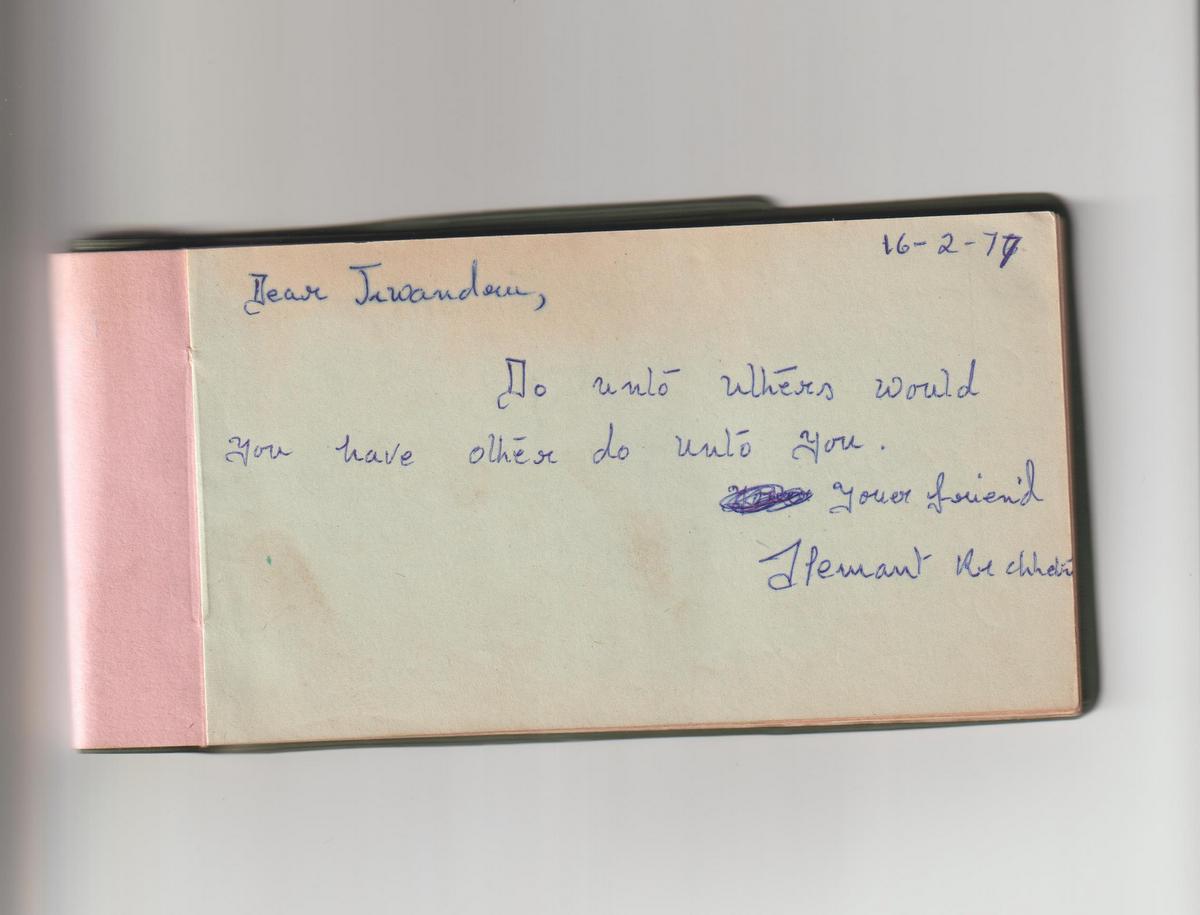 16-2-77
Dear Jiwandeu,
Do unto uthers would
you have other do unto you.
your friend
Hemant